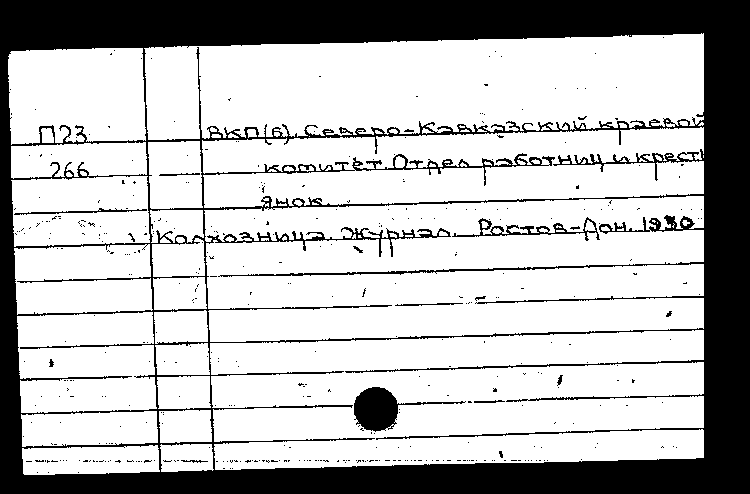 П23 ВКП(б). Северо-Кавказский краевой
266 комитет. Отдел работниц и крест
янок.
Колхозница. Журнал. Ростов-Дон. 1930